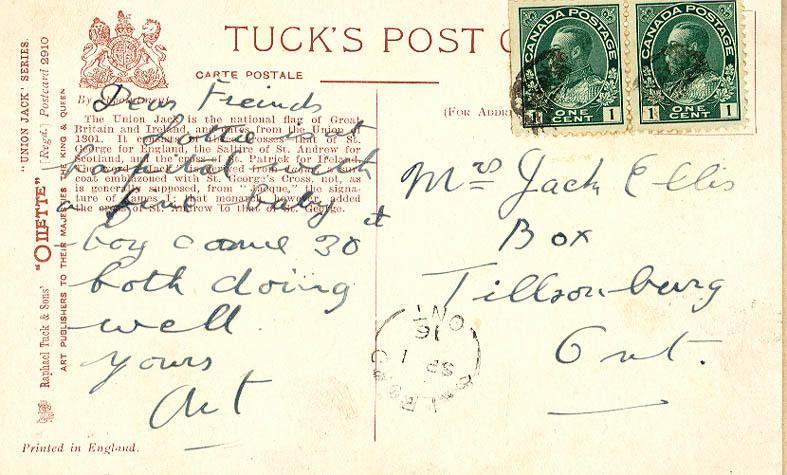 TUCK'S POST C
CARTE POSTALE
By Appointment.
(FOR ADDR
The Union Jack is the national flag of Great
Britain and Ireland, and dates from the Union of
1801. It consists of three crosses that of St.
George for England, the Saltire of St. Andrew for
Scotland, and the cross of St. Patrick for Ireland.
coat emblazoned with St. George's Cross, not, as
is generally supposed, from "Jacque," the signa-
ture of James I; that monarch, however, added
the cross of St. Andrew to that of St. George.
Dear Freinds
Lorne is at
hospital with
a fine baby
boy came 30 st
both doing
well.
yours
Art
"UNION JACK" SERIES.
Raphael Tuck & Sons' "OILETTE" [Regd.] Postcard 2910
ART PUBLISHERS TO THEIR MAJESTIES THE KING & QUEEN
Printed in England.
CANADA POSTAGE
1 ONE CENT 1
CANADA POSTAGE
1 ONE CENT 1
Mrs Jack Ellis
Box
Tillsonburg
Ont.
SP 1
16
ONT